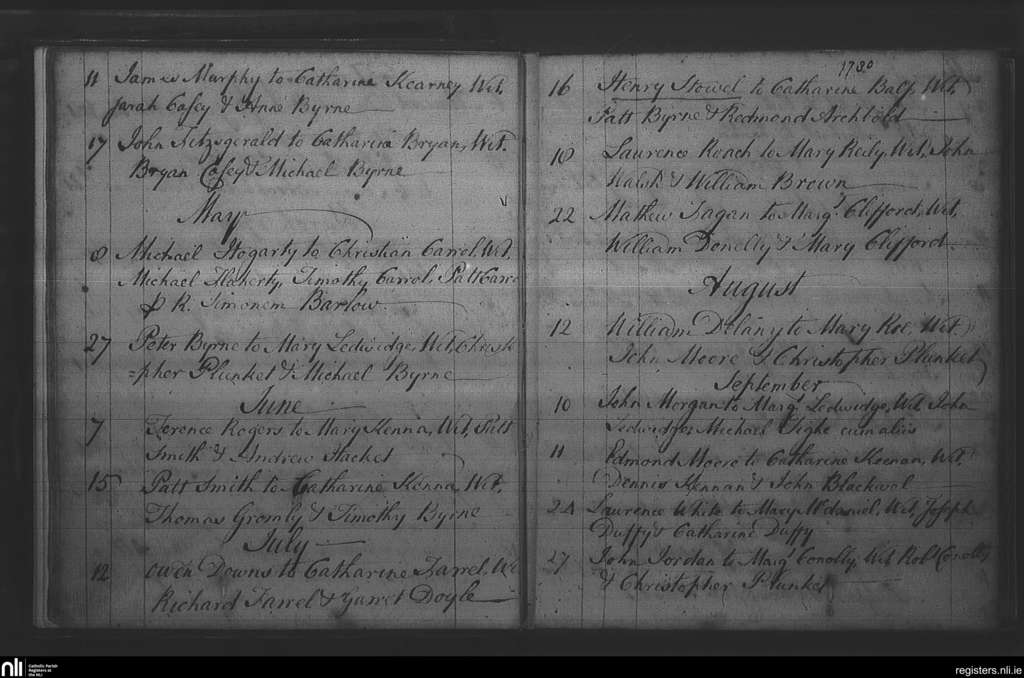 11 James Murphy to Catharine Kearney Wit,
Sarah Casey & Anne Byrne
17 John Fitzsgerald to Catharine Bryan, Wit.
Bryan Casey & Michael Byrne
May
8 Michael Hogarty to Christian Carrol, Wit,
Michael Flaherty, Timothy Carrol, Patt Carro
p R. Simonem Barlow
27 Peter Byrne to Mary Ledwidge, Wit, Christo
=pher Plunket & Michael Byrne
June
7 Terence Rogers to Mary Kenna, Wit, Patt
Smith & Andrew Hacket
15 Patt Smith to Catharine Kenna, Wit,
Thomas Gromly & Timothy Byrne
July
12 Owen Downs to Catharine Farrel, Wi
Richard Farrel & Garret Doyle
1780
16 Henry Stowel to Catharine Balf, Wit,
Patt Byrne & Redmond Archbold
18 Laurence Roach to Mary Reily, Wit, John
Walsh & William Brown
22 Mathew Fagan to Margt Clifford, Wit,
William Donelly & Mary Clifford
August
12 William Delany to Mary Roe, Wit
John Moore & Christopher Plunket
September
10 John Morgan to Margt Ledwidge, Wit, John
Ledwidge, Michael Tighe cum aliis
11 Edmond Moore to Catharine Keenan, Wit,
Dennis Kennan & John Blackwol
24 Laurence White to Mary Mcdaniel, Wit, Joseph
Duffy & Catharine Duffy
27 John Jordan to Margt Conolly, Wit Robt Conolly
& Christopher Plunket
nli
Catholic Parish
Registers at
the NLI
registers.nli.ie